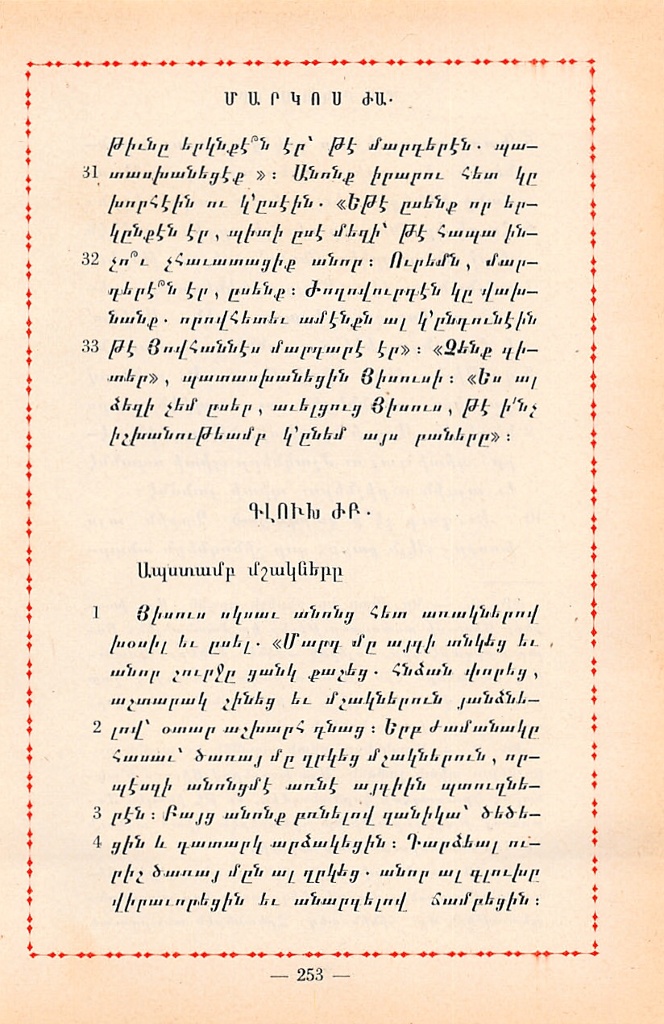 ՄԱՐԿՈՍ ԺԱ.
թիւնը երկնքէ՞ն էր՝ թէ մարդերէն. պա—
31 տասխանեցէք »։ Անոնք իրարու հետ կը
խորհէին ու կ՚ըսէին. «Եթէ ըսենք որ եր—
կընքէն էր, պիտի ըսէ մեզի՝ թէ հապա ին—
32 չո՞ւ չհաւատացիք անոր։ Ուրեմն, մար—
դերէ՞ն էր, ըսենք։ Ժողովուրդէն կը վախ—
նանք. որովհետեւ ամէնքն ալ կ՚ընդունէին
33 թէ Յովհաննէս մարգարէ էր»։ «Չենք գի—
տեր», պատասխանեցին Յիսուսի։ «Ես ալ
ձեզի չեմ ըսեր, աւելցուց Յիսուս, թէ ի՛նչ
իշխանութեամբ կ՚ընեմ այս բաները»։
ԳԼՈՒԽ ԺԲ.
Ապստամբ մշակները
1 Յիսուս սկսաւ անոնց հետ առակներով
խօսիլ եւ ըսել. «Մարդ մը այգի տնկեց եւ
անոր շուրջը ցանկ քաշեց. հնձան փորեց,
աշտարակ շինեց եւ մշակներուն յանձնե—
2 լով՝ օտար աշխարհ գնաց։ Երբ ժամանակը
հասաւ՝ ծառայ մը ղրկեց մշակներուն, որ—
պէսզի անոնցմէ առնէ այգիին պտուղնե—
3 րէն։ Բայց անոնք բռնելով զանիկա՝ ծեծե—
4 ցին և պարապ արձակեցին։ Դարձեալ ու—
րիշ ծառայ մըն ալ ղրկեց. անոր ալ գլուխը
վիրաւորեցին եւ անարգելով ճամբեցին։
— 253 —